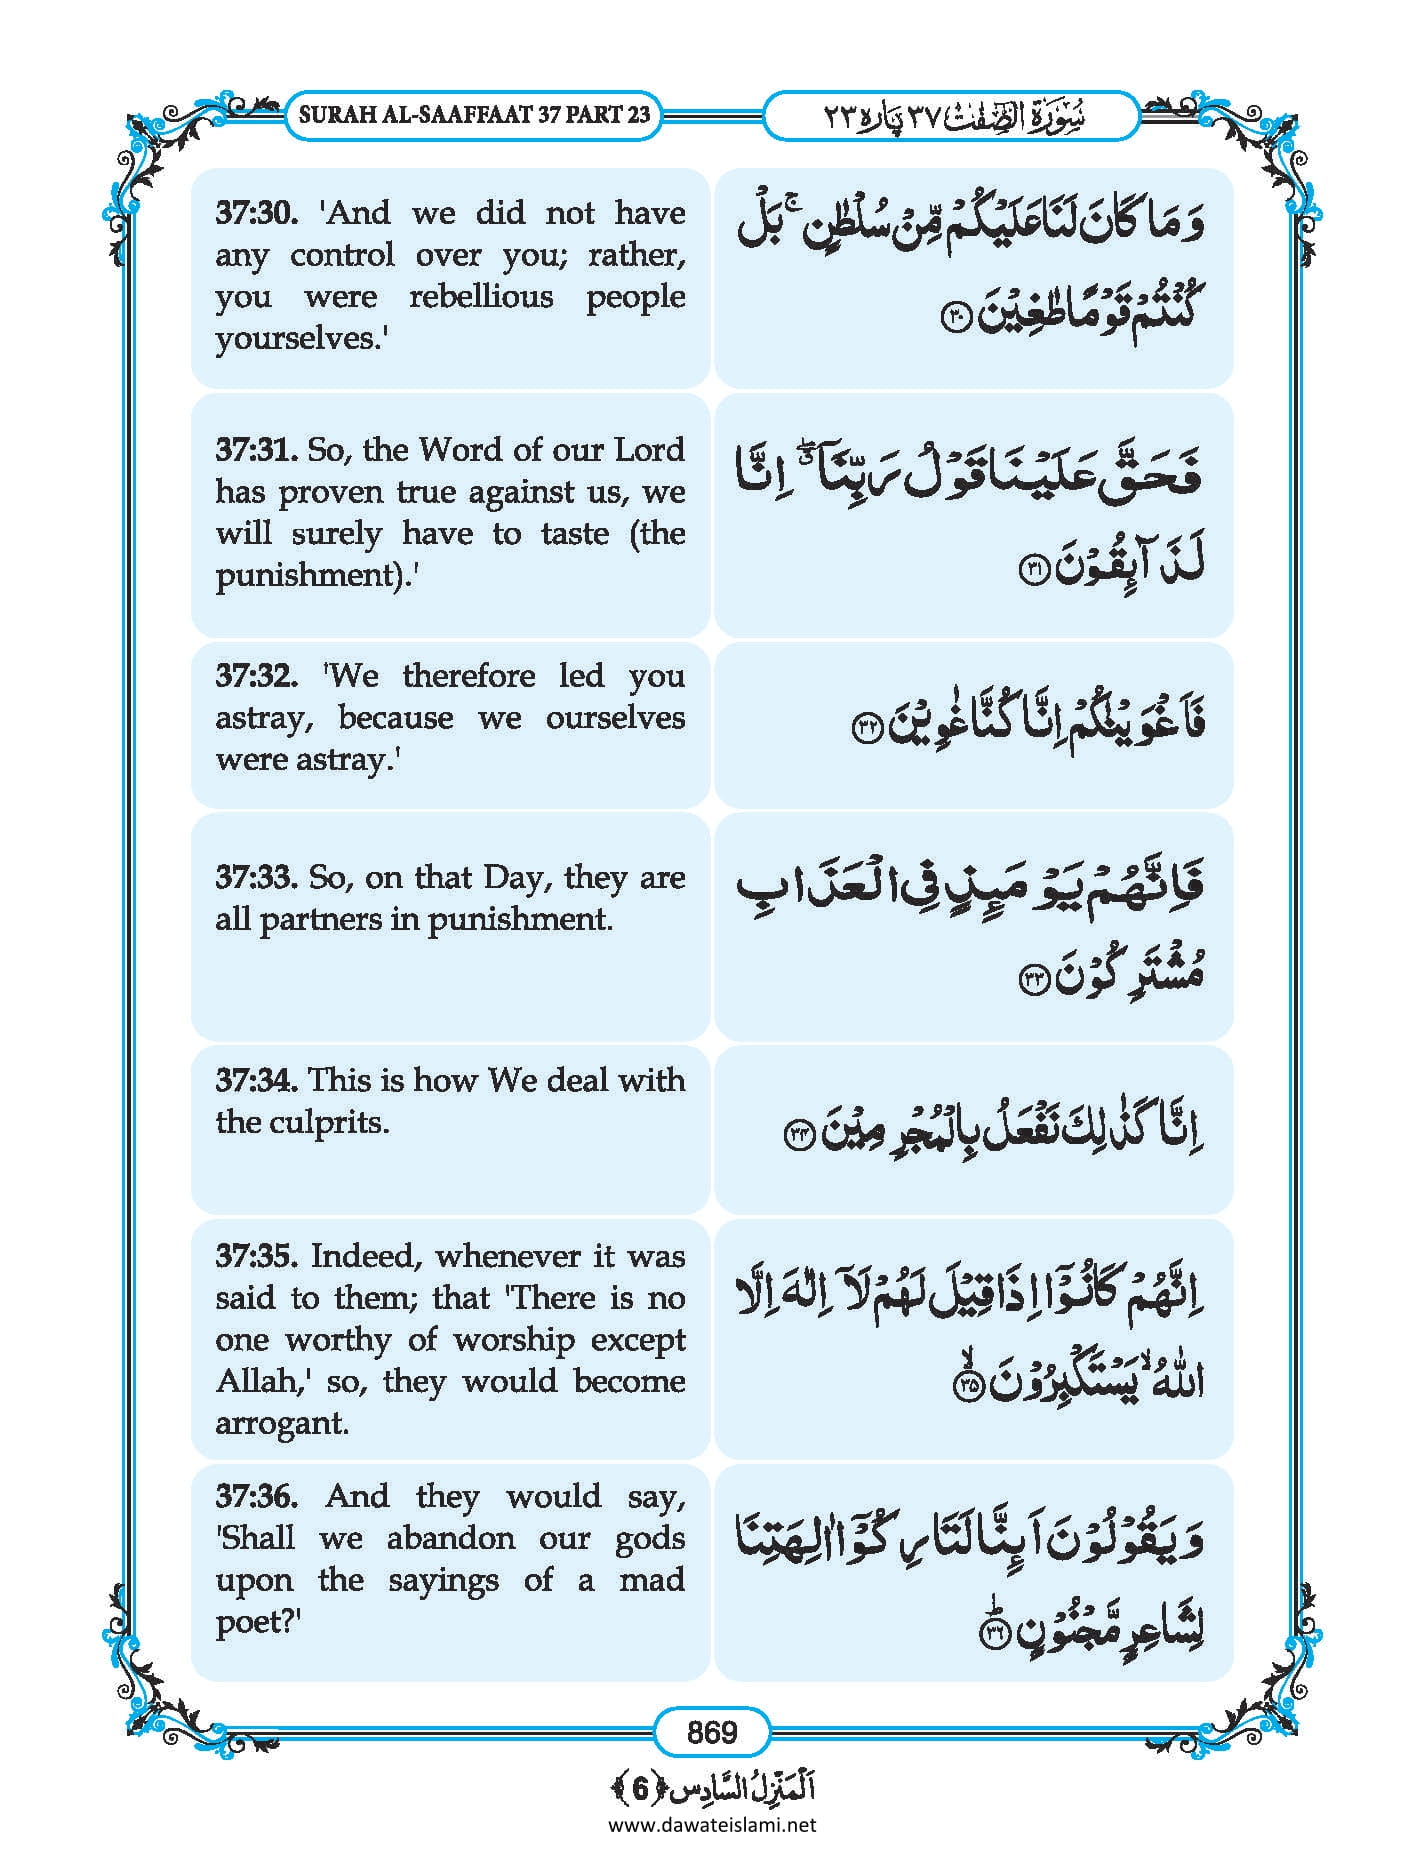 SURAH AL-SAAFFAAT 37 PART 23
سُوْرَۃُ الصّٰٓفّٰت ۳۷ پارہ ۲۳
37:30. 'And we did not have
any control over you; rather,
you were rebellious people
yourselves.'
وَمَا كَانَ لَنَا عَلَيْكُمْ مِّنْ سُلْطٰنٍ ۚ بَلْ
كُنْتُمْ قَوْمًا طٰغِيْنَ ﴿۳۰﴾
37:31. So, the Word of our Lord
has proven true against us, we
will surely have to taste (the
punishment).'
فَحَقَّ عَلَيْنَا قَوْلُ رَبِّنَآ ۖ اِنَّا
لَذَآئِقُوْنَ ﴿۳۱﴾
37:32. 'We therefore led you
astray, because we ourselves
were astray.'
فَاَغْوَيْنٰكُمْ اِنَّا كُنَّا غٰوِيْنَ ﴿۳۲﴾
37:33. So, on that Day, they are
all partners in punishment.
فَاِنَّهُمْ يَوْمَئِذٍ فِى الْعَذَابِ
مُشْتَرِكُوْنَ ﴿۳۳﴾
37:34. This is how We deal with
the culprits.
اِنَّا كَذٰلِكَ نَفْعَلُ بِالْمُجْرِمِيْنَ ﴿۳۴﴾
37:35. Indeed, whenever it was
said to them; that 'There is no
one worthy of worship except
Allah,' so, they would become
arrogant.
اِنَّهُمْ كَانُوْٓا اِذَا قِيْلَ لَهُمْ لَآ اِلٰهَ اِلَّا
اللّٰهُ ۙ يَسْتَكْبِرُوْنَ ﴿ۙ۳۵﴾
37:36. And they would say,
'Shall we abandon our gods
upon the sayings of a mad
poet?'
وَيَقُوْلُوْنَ اَئِنَّا لَتَارِكُوْٓا اٰلِهَتِنَا
لِشَاعِرٍ مَّجْنُوْنٍ ﴿ؕ۳۶﴾
869
اَلْمَنْزِلُ السَّادِس ﴿6﴾
www.dawateislami.net